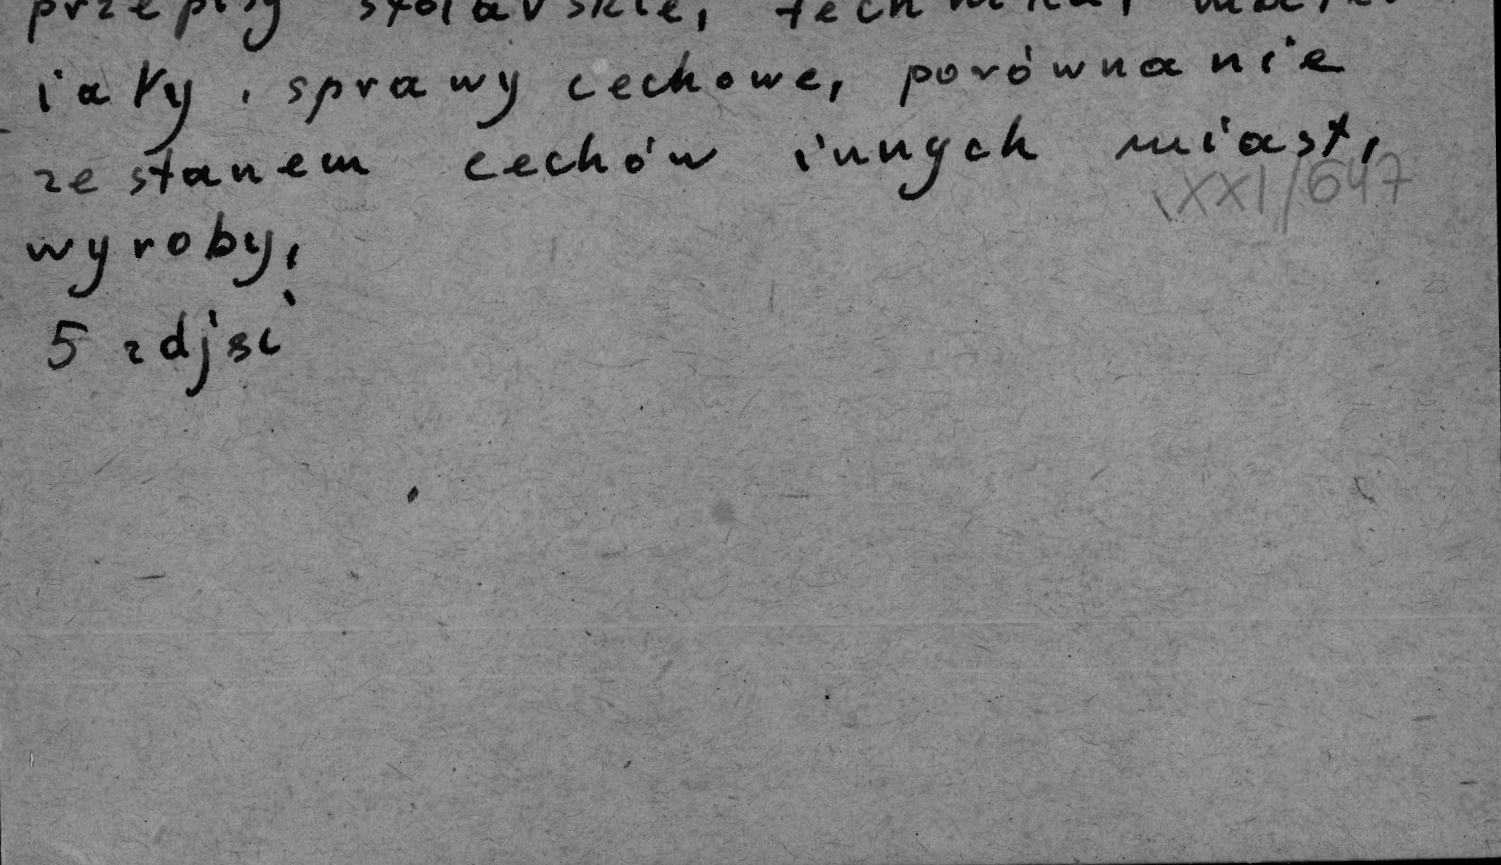 przepisy stolarskie, technika, mater
iały, sprawy cechowe, porównanie
ze stanem cechów innych miast,
XXI/647
wyroby,
5 zdjęć